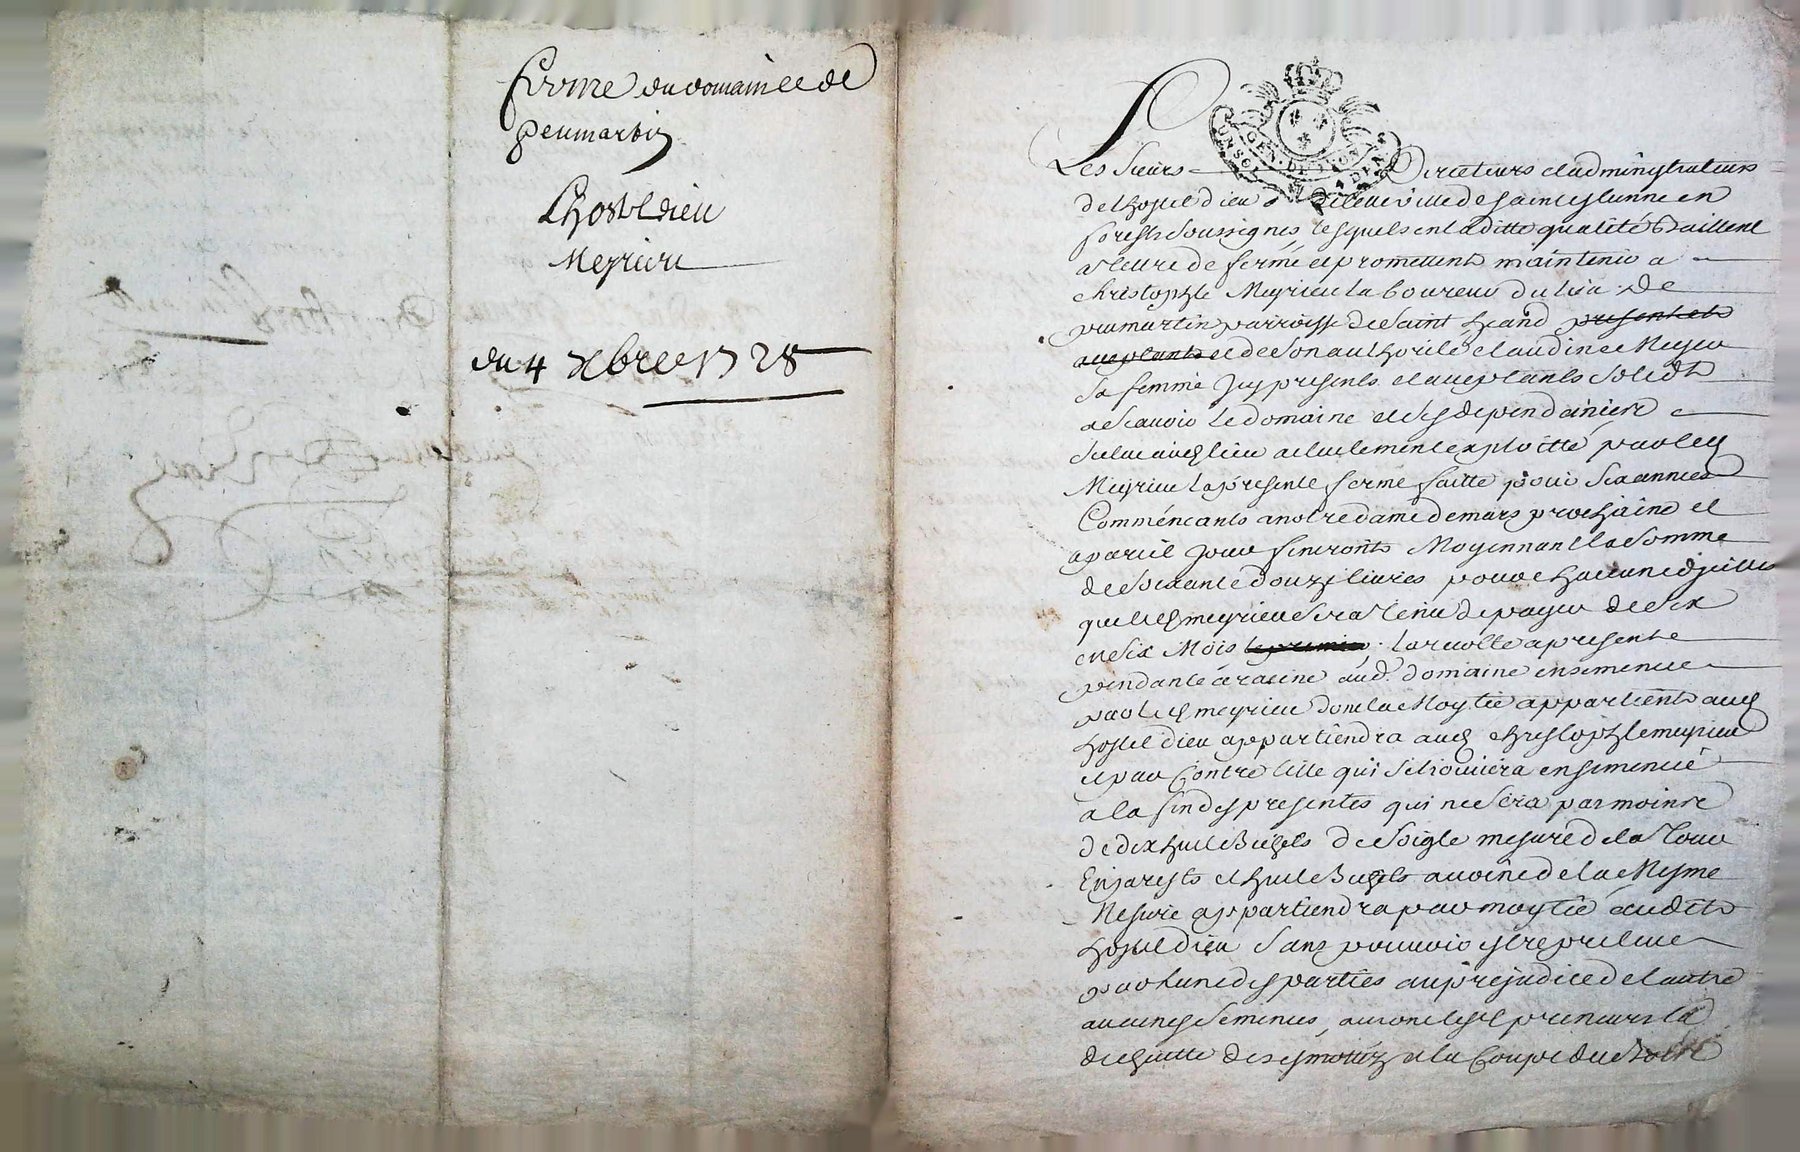 ferme du domaine de
peumartin
Lhosteldieu
Meyrieu
du 4 xbre 1728
GEN. DE LYON
Les Sieurs Directeurs et administrateurs
de Lhostel dieu de la ville de saint estienne en
forests soussignes lesquels en laditte qualité Baillent
a tiltre de ferme et promettent maintenir a
christophle Meyrieu laboureur du lieu de
peumartin parroisse de saint heand presents et
aceptants et de son authorité claudine Meyeu
sa femme icy presents et aceptants solidt
a scavoir le domaine et ses dependances
actuelement exploitté par led
Meyrieu la presente ferme faitte pour six années
Commencants a notre dame de mars prochaine et
a pareil jour finironts Moyennant la somme
de soixante douze livres pour chacune d'icelles
que led meyrieu sera tenu de payer de six
en six Mois le premier la recolte a presente
pendante a racine aud. domaine ensemencée
par led meyrieu dont la Moytié appartients aud
hostel dieu appartiendra aud christophle meyrieu
et par contre celle qui se trouvera ensemencée
a la fin des presentes qui ne sera pas moins
de dix huit Bichets de seigle mesure de la Tour
En jarests et huit Bichets avoine de la Mesme
Mesure appartiendra par moytié audits
hostel dieu sans pouvoir estre prelevé
par lune des parties au prejudice de l'autre
aucunes semences, auront lesd preneurs la
et la Coupe du